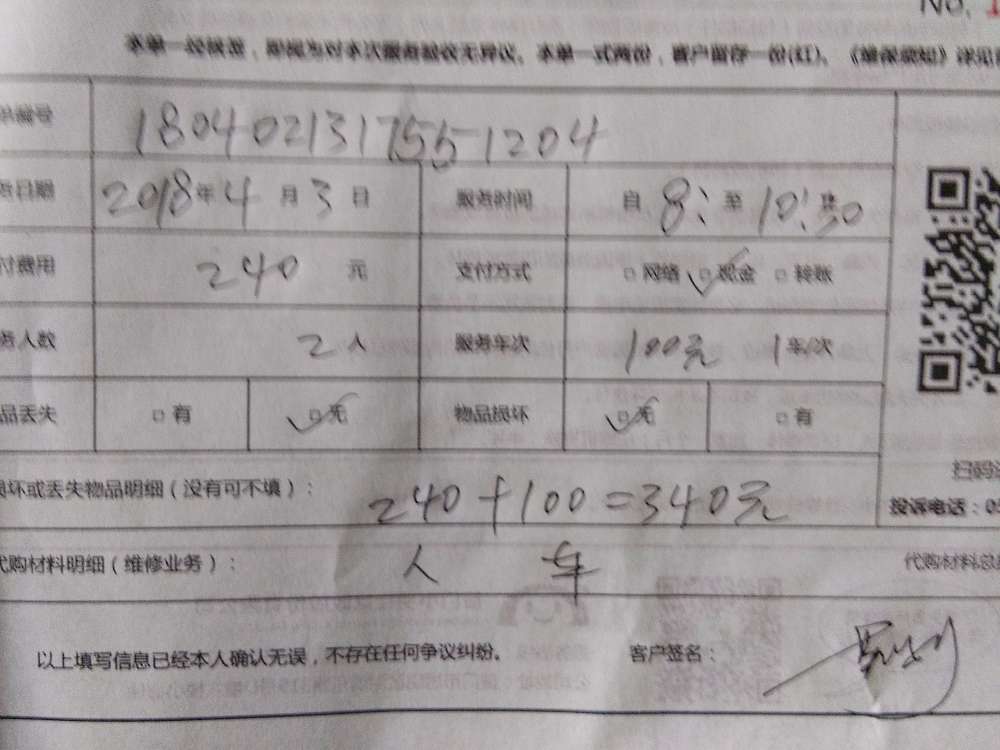 No. 1
本单一经核签，即视为对本次服务验收无异议。本单一式两份，客户留存一份(红)。《维保须知》详见
单编号 180402131755-1204
务日期 2018年4月3日 服务时间 自8:至10:30
付费用 240元 支付方式 □网络 □现金 □转账
务人数 2人 服务车次 100元 1车/次
品丢失 □有 □无 物品损坏 □无 □有
损坏或丢失物品明细（没有可不填）： 240+100=340元
扫码
投诉电话：0
代购材料明细（维修业务）： 人 车 代购材料总
以上填写信息已经本人确认无误，不存在任何争议纠纷。 客户签名：